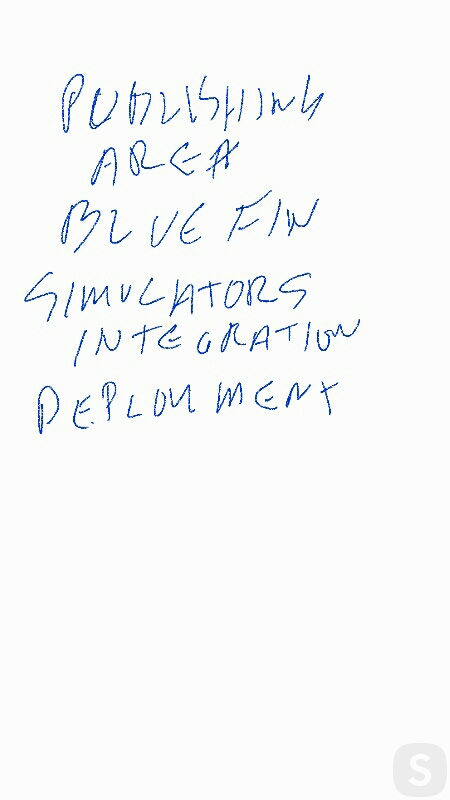 PUBLISHING
AREA
BLUE FIN
SIMULATORS
INTEGRATION
DEPLOYMENT
S